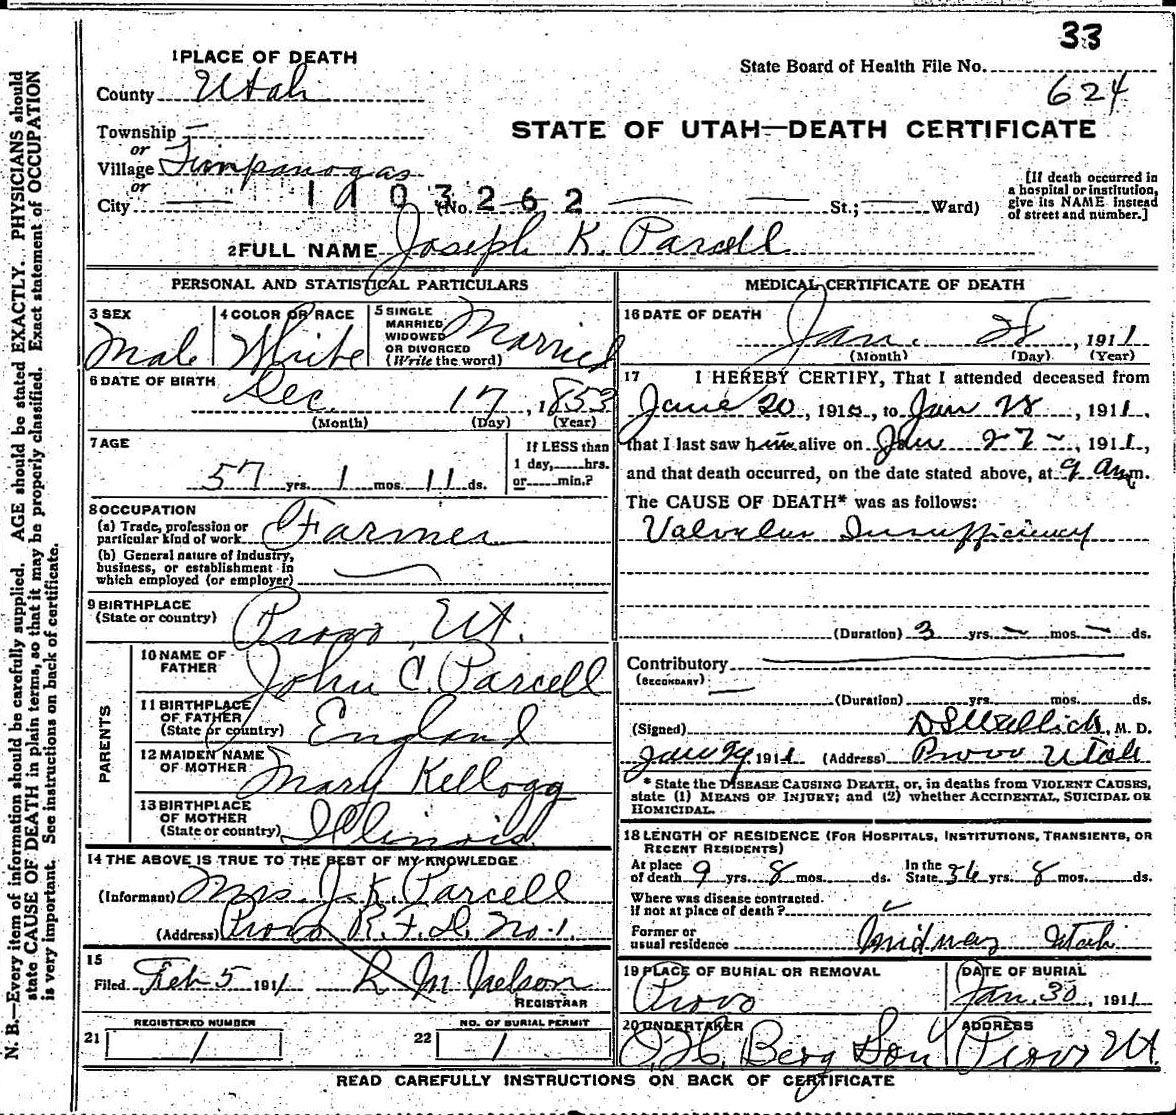 33
State Board of Health File No.
624
1 PLACE OF DEATH
County Utah
STATE OF UTAH—DEATH CERTIFICATE
Township —
or
Village Timpanogas
or
City — 1103262 (No. — — St.; — Ward)
[If death occurred in
a hospital or institution,
give its NAME instead
of street and number.]
2 FULL NAME Joseph K. Parcell
PERSONAL AND STATISTICAL PARTICULARS
3 SEX
Male
4 COLOR OR RACE
White
5 SINGLE
MARRIED
WIDOWED
OR DIVORCED
(Write the word)
Married
6 DATE OF BIRTH
Dec. 17, 1853
(Month) (Day) (Year)
7 AGE
57 yrs. 1 mos. 11 ds.
If LESS than
1 day, hrs.
or min.?
8 OCCUPATION
(a) Trade, profession or
particular kind of work Farmer
(b) General nature of industry,
business, or establishment in
which employed (or employer) —
9 BIRTHPLACE
(State or country)
Provo, Ut.
PARENTS
10 NAME OF
FATHER
John C. Parcell
11 BIRTHPLACE
OF FATHER
(State or country)
England
12 MAIDEN NAME
OF MOTHER
Mary Kellogg
13 BIRTHPLACE
OF MOTHER
(State or country)
Illinois
14 THE ABOVE IS TRUE TO THE BEST OF MY KNOWLEDGE
(Informant) Mrs. J. K. Parcell
(Address) Provo R.F.D. No. 1.
15
Filed Feb 5 1911 L M Nelson
REGISTRAR
21
REGISTERED NUMBER
1
22
NO. OF BURIAL PERMIT
1
MEDICAL CERTIFICATE OF DEATH
16 DATE OF DEATH
Jan. 28, 1911
(Month) (Day) (Year)
17 I HEREBY CERTIFY, That I attended deceased from
June 20, 1910, to Jan 28, 1911,
that I last saw him alive on Jan 27-, 1911,
and that death occurred, on the date stated above, at 9 a.m.
The CAUSE OF DEATH* was as follows:
Valvular Insufficiency
(Duration) 3 yrs. — mos. — ds.
Contributory —
(SECONDARY) —
(Duration) yrs. mos. ds.
(Signed) , M. D.
Jan 29 1911 (Address) Provo Utah
* State the DISEASE CAUSING DEATH, or, in deaths from VIOLENT CAUSES,
state (1) MEANS OF INJURY; and (2) whether ACCIDENTAL, SUICIDAL OR
HOMICIDAL.
18 LENGTH OF RESIDENCE (FOR HOSPITALS, INSTITUTIONS, TRANSIENTS, OR
RECENT RESIDENTS)
At place
of death 9 yrs. 8 mos. ds.
In the
State 36 yrs. 8 mos. ds.
Where was disease contracted.
if not at place of death?
Former or
usual residence Midway Utah
19 PLACE OF BURIAL OR REMOVAL
Provo
DATE OF BURIAL
Jan. 30, 1911
20 UNDERTAKER
O. H. Berg Son
ADDRESS
Provo Ut.
READ CAREFULLY INSTRUCTIONS ON BACK OF CERTIFICATE
N. B.—Every item of information should be carefully supplied. AGE should be stated EXACTLY. PHYSICIANS should
state CAUSE OF DEATH in plain terms, so that it may be properly classified. Exact statement of OCCUPATION
is very important. See instructions on back of certificate.